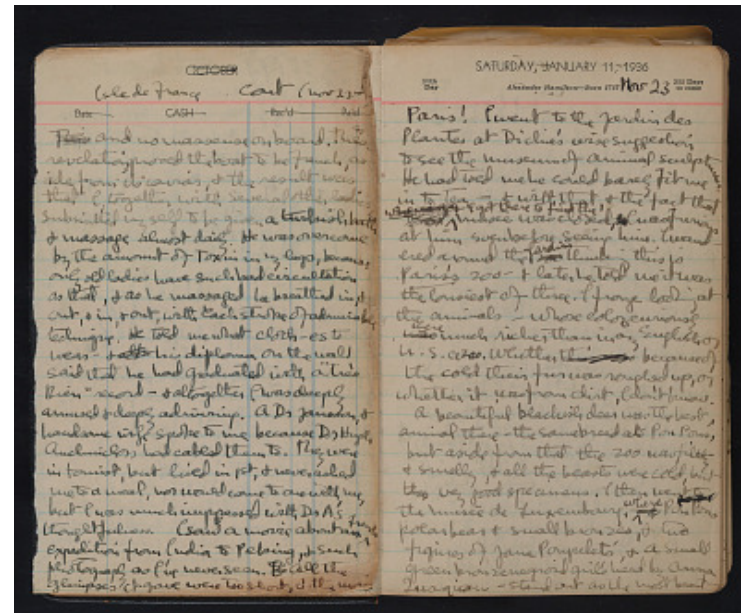 OCTOBER
Isle de France Cont (Nov 23
Date CASH Rec'd Paid
and no masseuse on board. This
revelation proved the boat to be French, as
ide from its caviar, & the result was
that I together with several other ladies
submitted myself to be given a turkish bath
& massage almost daily. He was overcome
by the amount of toxin in my legs, because
only old ladies have such bad circulation
as that, & as he massaged he breathed in, &
out, & in, & out, with each stroke of admirable
technique. He told me what cloth-es to
wear - & his diploma on the wall
said that he had graduated with a "très
Bien" record - & altogether I was deeply
amused & deeply admiring. A Dr &
handsome wife spoke to me because Dr Hugh
had cabled them to. They were
in tourist, but lived in 1st, & never asked
me to a meal, nor would come to one with me,
but I was much impressed with Dr A's
thoughtfulness. I saw a movie about an
expedition from India to Peking, & such
photography as I've never seen. the
glimpses were too short, & the
SATURDAY, JANUARY 11, 1936
Nov 23
Paris! I went to the Jardin des
Plantes at Dickie's wise suggestion
to see the museum of animal sculpture.
He had told me he could barely fit me
in to tea - & with that, & the fact that
musee was closed, I was furious
at him even before seeing him. Wand
ered around the thinking this is
Paris's zoo - & later he told me it was
the lousiest of three. I froze looking at
the animals - whose color
much richer than in any English or
U.S. zoo. Whether because of
the cold their fur was roughed up, or
whether it was from dirt, I don't know.
A beautiful blackish deer was the best
animal there - the same breed at Pon Pons,
but aside from that the zoo was
& smelly, & all the beasts were cold, but
very good specimens. I then went to
the musée de Luxembourg, where Pompons
polar bear & small bronzes, & two
figures of Jane Poupelets, & a small
green bronze negro girl's head by Anna
Quinquaud - stand out as the most